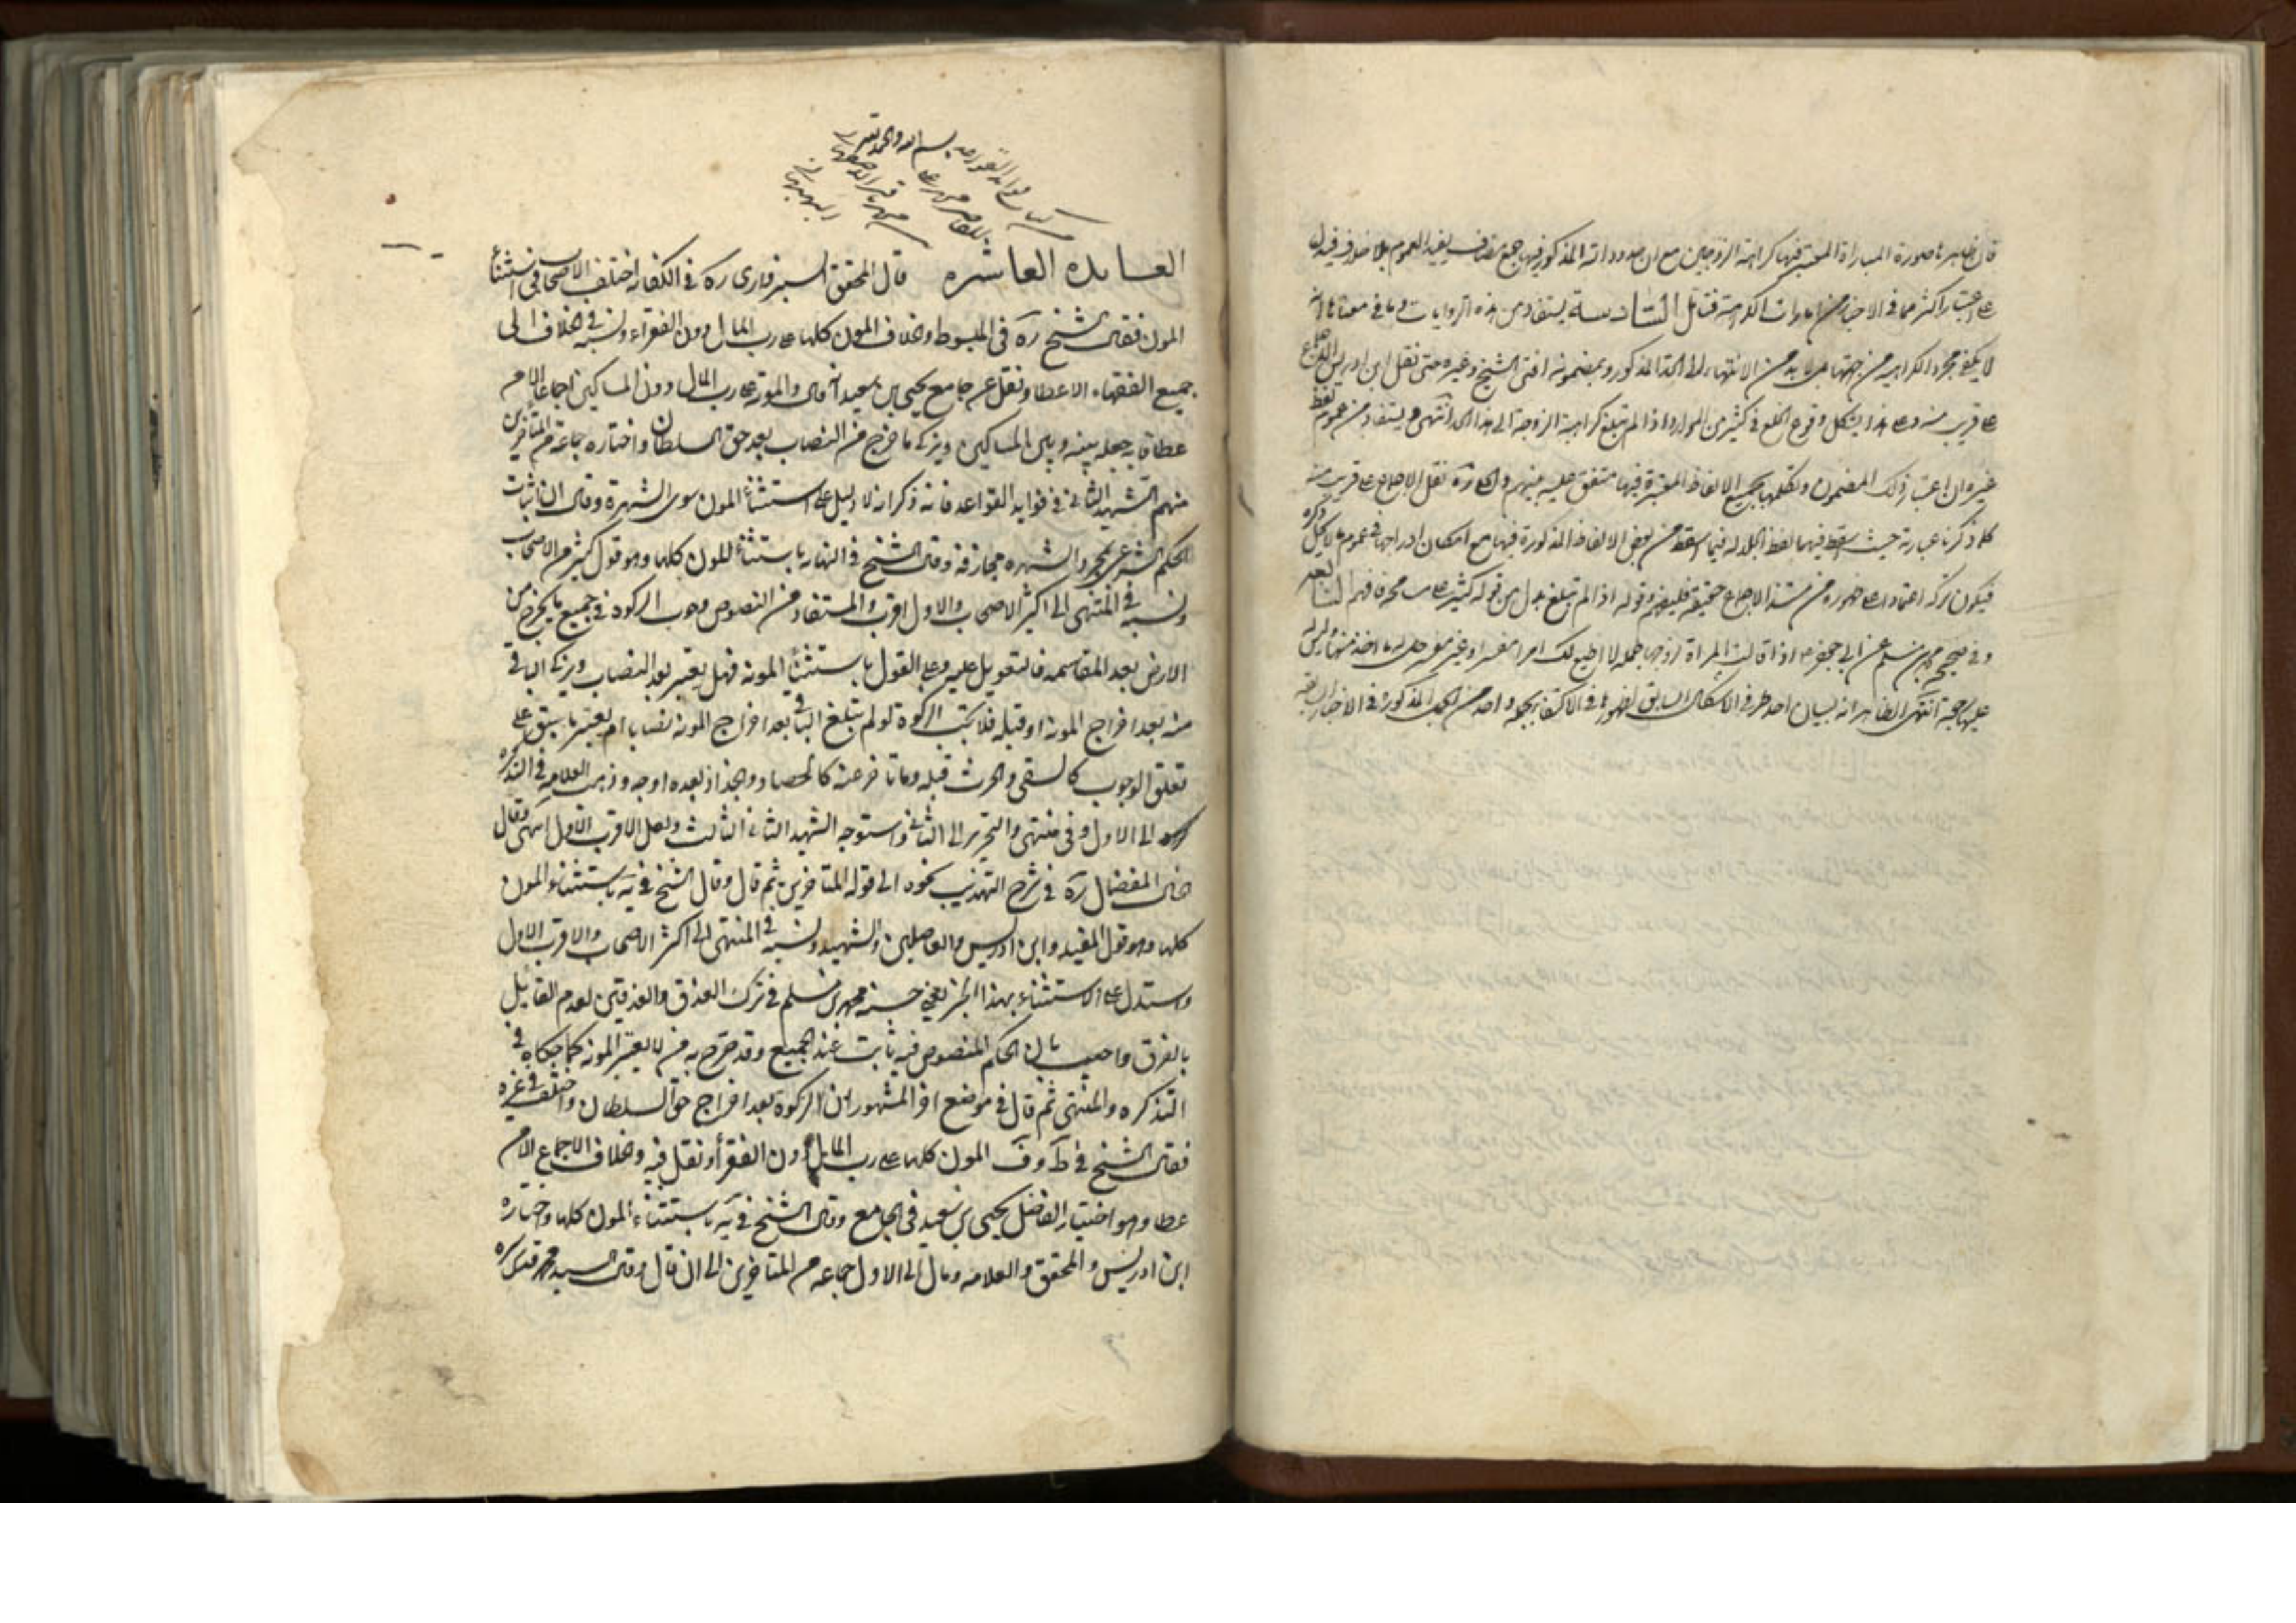 فان ظاهرها صورة المباراة المعتبر فيها كراهة الزوجين مع ان حدود الله المذكور فيها جمع مضاف يفيد العموم بلا خلاف فيدل
على اعتبار اكثر مما في الاخبار من امارات الكراهة فتامل السادسة يستفاد من هذه الروايات وما في معناها انه
لا يكفي مجرد الكراهية من جهتها بل لا بد من الانتهاء الى الحد المذكور وبمضمونه افتى الشيخ وغيره حتى نقل ابن ادريس الاجماع
على قريب منه وعلى هذا يشكل وقوع الخلع في كثير من الموارد اذا لم تبلغ كراهة الزوجة الى هذا الحد انتهى ويستفاد من عموم لفظ
غيره ان اعتبار ذلك المضمون وتكلمها بجميع الالفاظ المعتبرة فيها متفق عليه بينهم والحلي ره نقل الاجماع على قريب منه
كما ذكرنا عبارته حيث اسقط فيها لفظ الجلاله فيما اسقط من بعض الالفاظ المذكورة فيها مع امكان ادراجها في عموم ذكره
فيكون تركه اعتمادا على ظهوره من مستند الاجماع حقيقة فليفهم وقوله اذا لم تبلغ بدل من قوله كثير على مسامحة فافهم السابعة
وفي صحيح محمد بن مسلم عن ابي جعفر ع اذا قالت المراة لزوجها جملة لا اطيع لك امرا مفسرا وغير مفسر حل له ما اخذ منها وليس له
عليها رجعة انتهى الظاهر انه لبيان احد طرفي الاشكال السابق لظهورها في الاكتفاء بجملة واحدة من الجمل المذكورة في الاخبار السابقة
بسم الله والحمد لله
العائده العاشره قال المحقق السبزواري ره في الكفايه اختلف الاصحاب في استثناء
المون فقال الشيخ ره في المبسوط والخلاف المون كلها على رب المال دون الفقراء ونسبه في الخلاف الى
جميع الفقهاء الا عطا ونقل عن جامع يحيى بن سعيد انه قال والمونة على رب المال دون المساكين اجماعا الا من
عطا فانه جعله بينه وبين المساكين ويزكى ما خرج من النصاب بعد حق السلطان واختاره جماعة من المتاخرين
منهم الشهيد الثاني في فوايد القواعد فانه ذكر انه لا دليل على استثناء المون سوى الشهرة وقال ان اثبات
الحكم الشرعي بمجرد الشهره مجازفة وقال الشيخ في النهايه باستثناء المون كلها وهو قول كثير من الاصحاب
ونسبه في المنتهى الى اكثر الاصحاب والاول اقرب والمستفاد من النصوص وجوب الزكوة في جميع ما يخرج من
الارض بعد المقاسمة فالتعويل عليه وعلى القول باستثناء المونه فهل يعتبر بعد النصاب ويزكى الباقي
منه بعد اخراج المونه او قبله فلا تجب الزكوة لو لم تبلغ الباقي بعد اخراج المونه نصابا ام يعتبر ما سبق على
تعلق الوجوب كالسقي والحرث قبله وما تاخر عنه كالحصاد والجذاذ بعده اوجه وذهب العلامه في التذكره
الى الاول وفي منتهى والتحرير الى الثاني واستوجه الشهيد الثاني الثالث ولعل الاقرب الاول انتهى وقال
المفضال ره في شرح التهذيب نحوه الى قوله المتاخرين ثم قال وقال الشيخ في يه باستثناء المون
كلها وهو قول المفيد وابن ادريس والفاضلين والشهيد ونسبه في المنتهى الى اكثر الاصحاب والاقرب الاول
واستدل على الاستثناء بهذا الخبر يعني حسنة محمد بن مسلم في ترك العذق والعذقين لعدم القايل
بالفرق واجيب بان الحكم المنصوص فيه ثابت عند الجميع وقد صرح به من لا يعتبر المونه كما حكاه في
التذكره والمنتهى ثم قال في موضع اخر المشهور ان الزكوة بعد اخراج حق السلطان واختلف في غيره
فقال الشيخ في ط وف المون كلها على رب المال دون الفقراء ونقل فيه والخلاف الاجماع الا من
عطا وهو اختيار الفاضل يحيى بن سعيد في الجامع وقال الشيخ في يه باستثناء المون كلها واختاره
ابن ادريس والمحقق والعلامه ومال الى الاول جماعه من المتاخرين الى ان قال وقال السيد محمد قدس سره